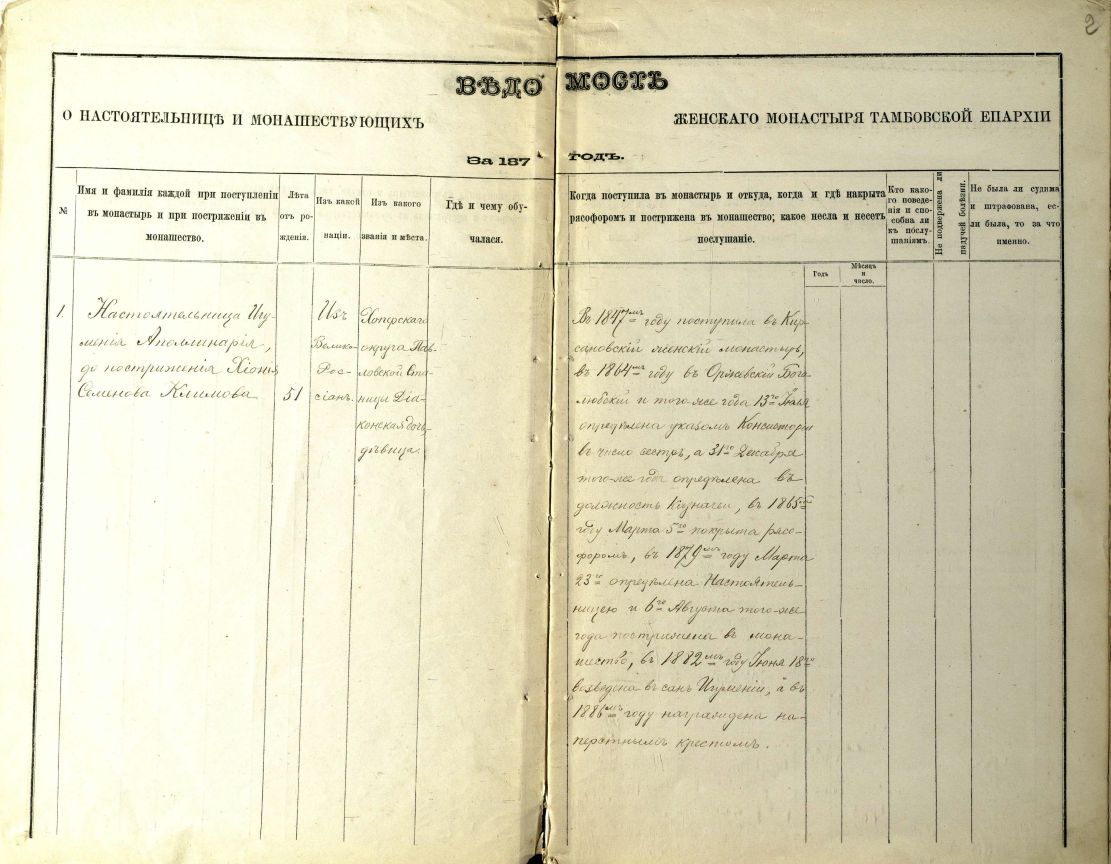 2
ВѢДОМОСТЬ
О НАСТОЯТЕЛЬНИЦѢ И МОНАШЕСТВУЮЩИХЪ ЖЕНСКАГО МОНАСТЫРЯ ТАМБОВСКОЙ ЕПАРХІИ
За 187 годъ.
№
Имя и фамилія каждой при поступленіи
въ монастырь и при постриженіи въ
монашество.
Лѣта
отъ ро-
жденія.
Изъ какой
націи.
Изъ какого
званія и мѣста.
Гдѣ и чему обу-
чалася.
Когда поступила въ монастырь и откуда, когда и гдѣ накрыта
рясофоромъ и пострижена въ монашество; какое несла и несетъ
послушаніе.
Годъ
Мѣсяцъ
и
число.
Кто како-
го поведе-
нія и спо-
собна ли
къ послу-
шаніямъ.
Не подвержена ли
падучей болѣзни.
Не была ли судима
и штрафована, ес-
ли была, то за что
именно.
1.
Настоятельница Игу-
менія Аполлинарія,
до постриженія Хіонія
Семенова Климова
51
Изъ
Велико-
Рос-
сіанъ.
Хоперскаго
округа Пав-
ловской Ста-
ницы Діа-
конская дочь,
дѣвица.
Въ 1847мъ году поступила въ Кир-
сановскій женскій монастырь,
въ 1864мъ году въ Оржевскій Бого-
любскій и того-же года 13го Іюля
опредѣлена указомъ Консисторіи
въ число сестръ, а 31го Декабря
того-же года опредѣлена въ
должность Казначеи, въ 1865мъ
году Марта 5го покрыта рясо-
форомъ, въ 1879мъ году Марта
23го опредѣлена Настоятель-
ницею и 6го Августа того-же
года пострижена въ мона-
шество, въ 1882мъ году Іюня 18го
возведена въ санъ Игуменіи, а въ
1886мъ году награждена на-
перстнымъ крестомъ.